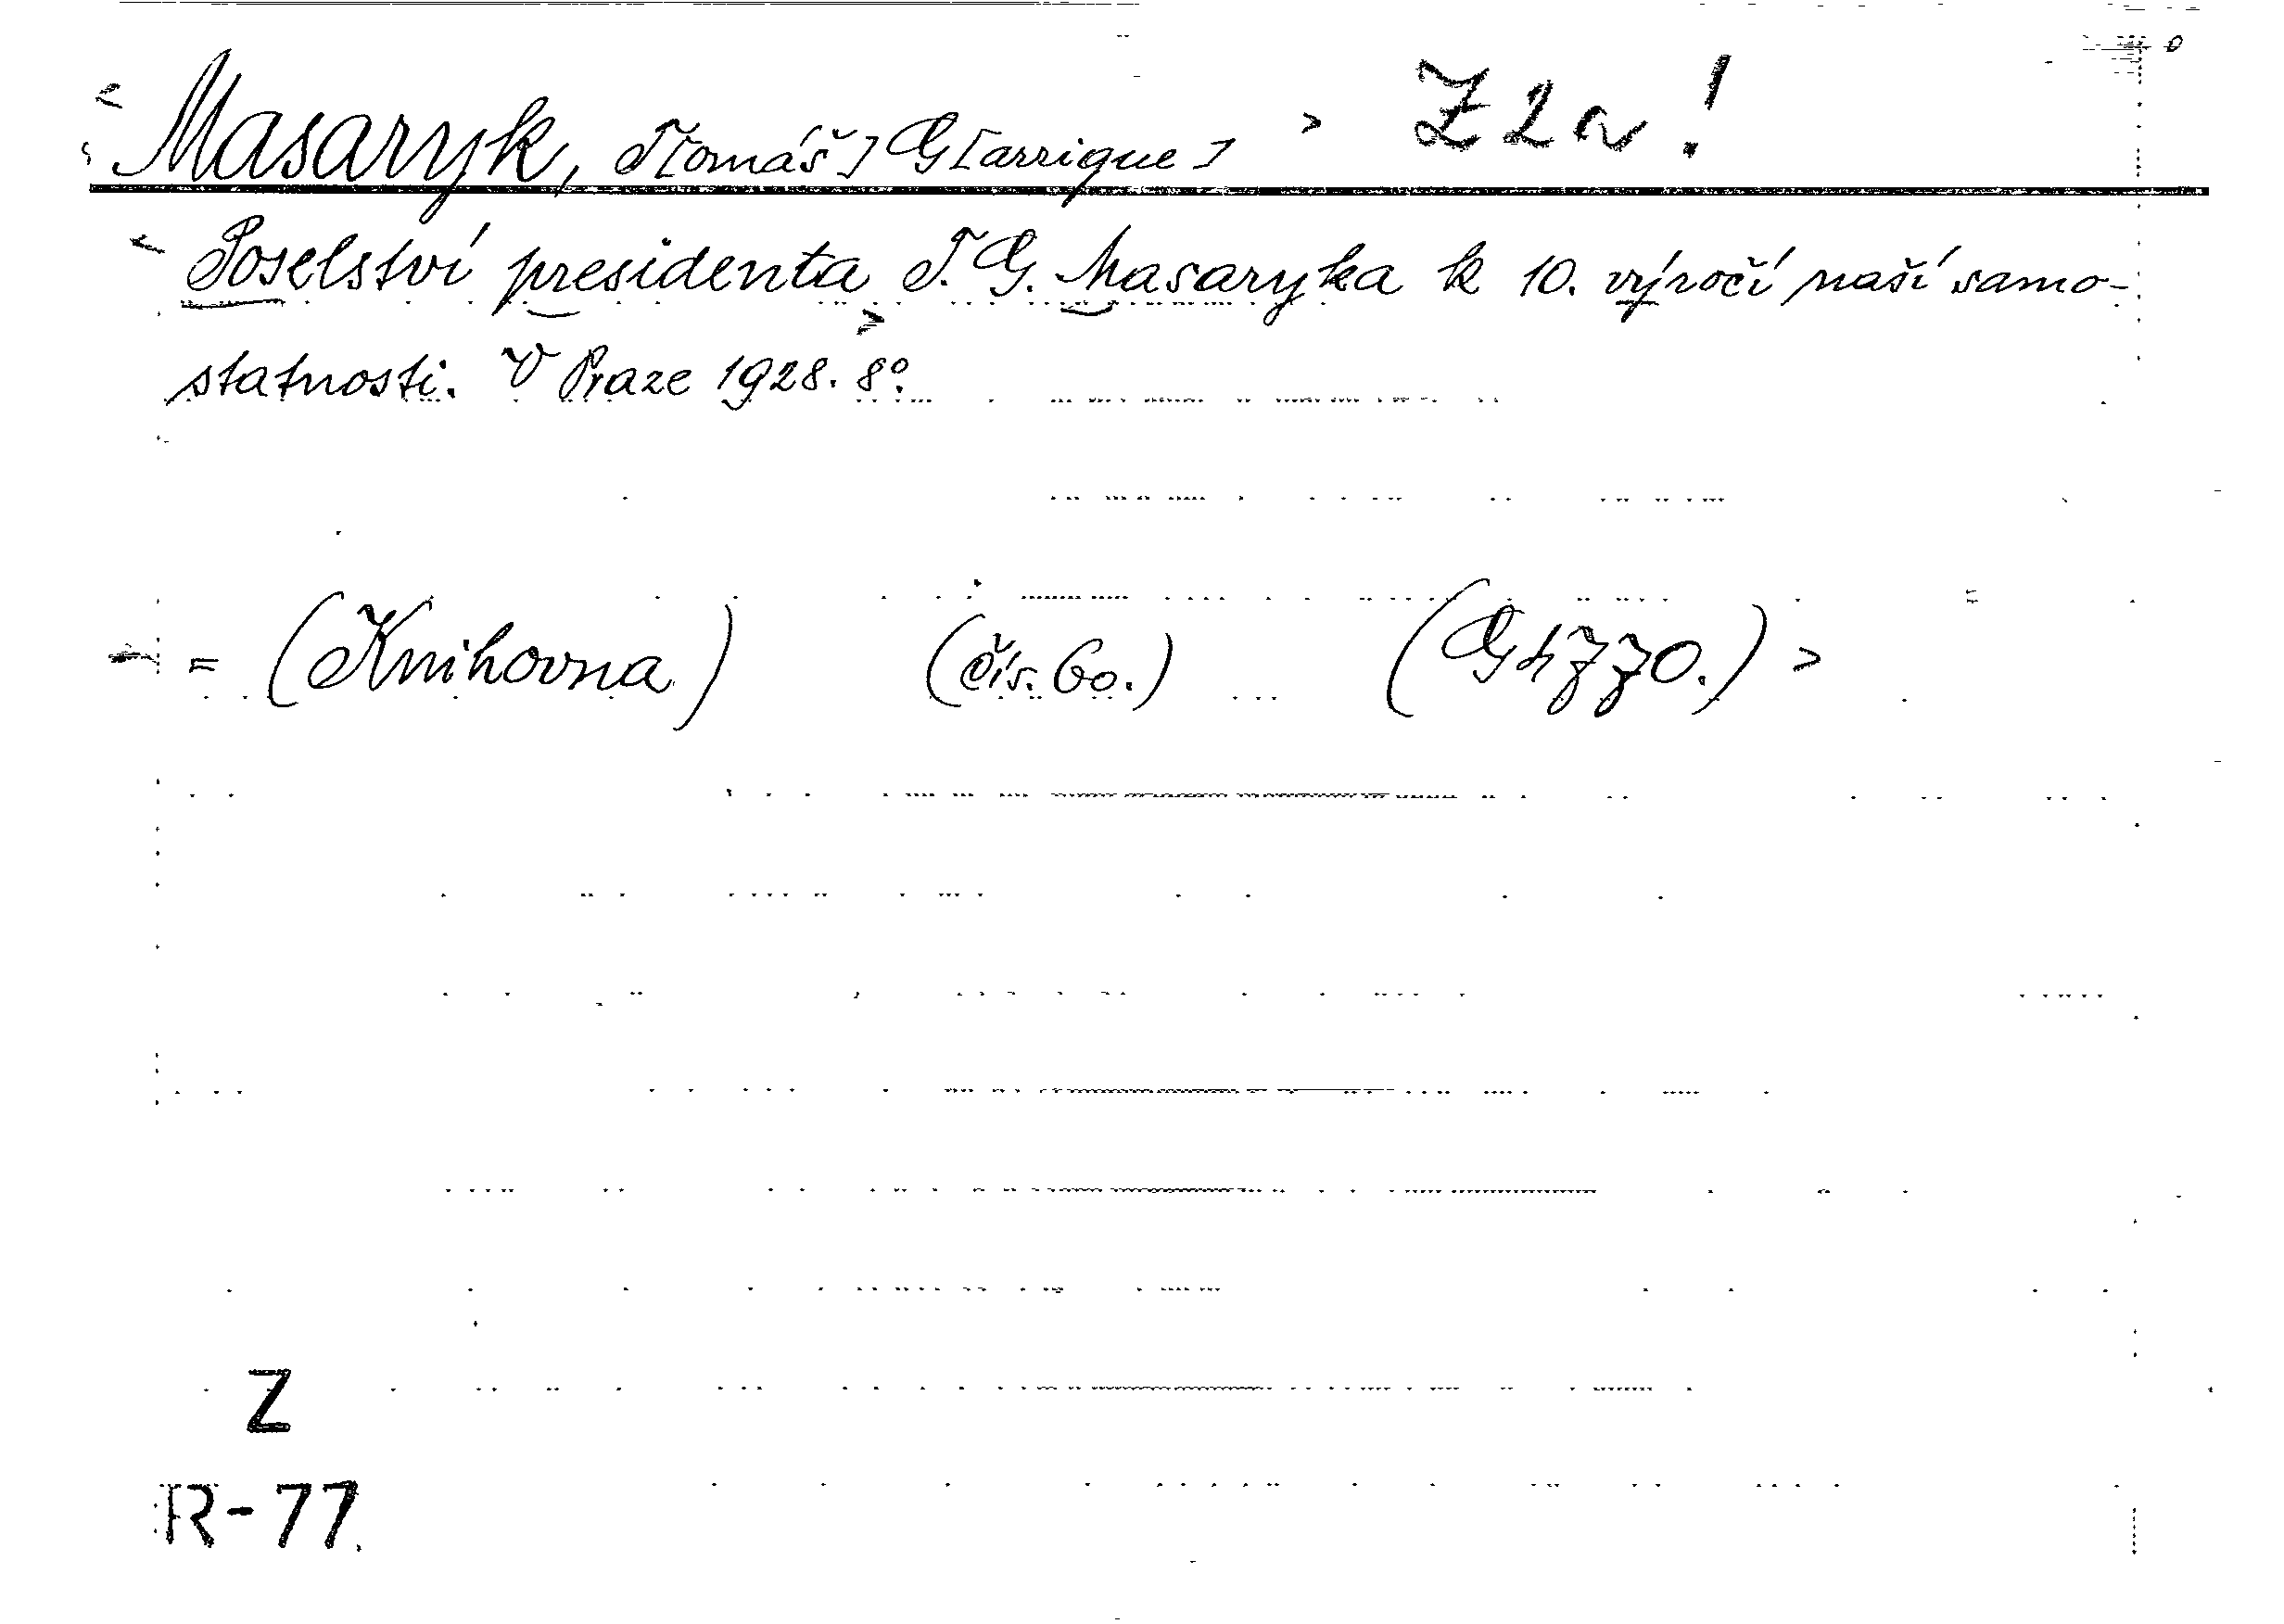 < Masaryk, T[omáš] G[arrigue] > Z 2 a !
< Poselství presidenta T. G. Masaryka k 10. výročí naší samo-
statnosti. V Praze 1928. 8°.
= (Knihovna) (čís. 60.) >
Z
R-77.